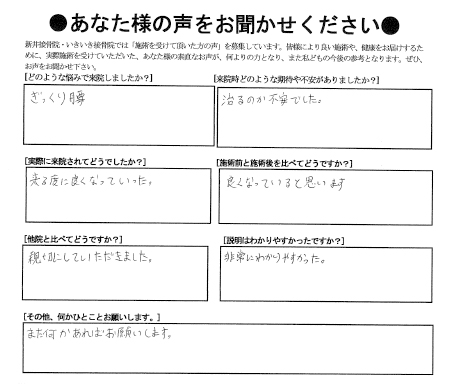 ●あなた様の声をお聞かせください●
新井接骨院・いきいき接骨院では「施術を受けて頂いた方の声」を募集しています。皆様により良い施術や、健康をお届けするため
に、実際施術を受けていただいた、あなた様の素直なお声が、何よりの力となり、また私どもの今後の参考となります。ぜひ、
お声をお聞かせ下さい。
[どのような悩みで来院しましたか？]
ぎっくり腰
[来院時どのような期待や不安がありましたか？]
治るのか不安でした。
[実際に来院されてどうでしたか？]
来る度に良くなっていった。
[施術前と施術後を比べてどうですか？]
良くなっていると思います
[他院と比べてどうですか？]
親切にしていただきました。
[説明はわかりやすかったですか？]
非常にわかりやすかった。
[その他、何かひとことお願いします。]
また何かあればお願いします。